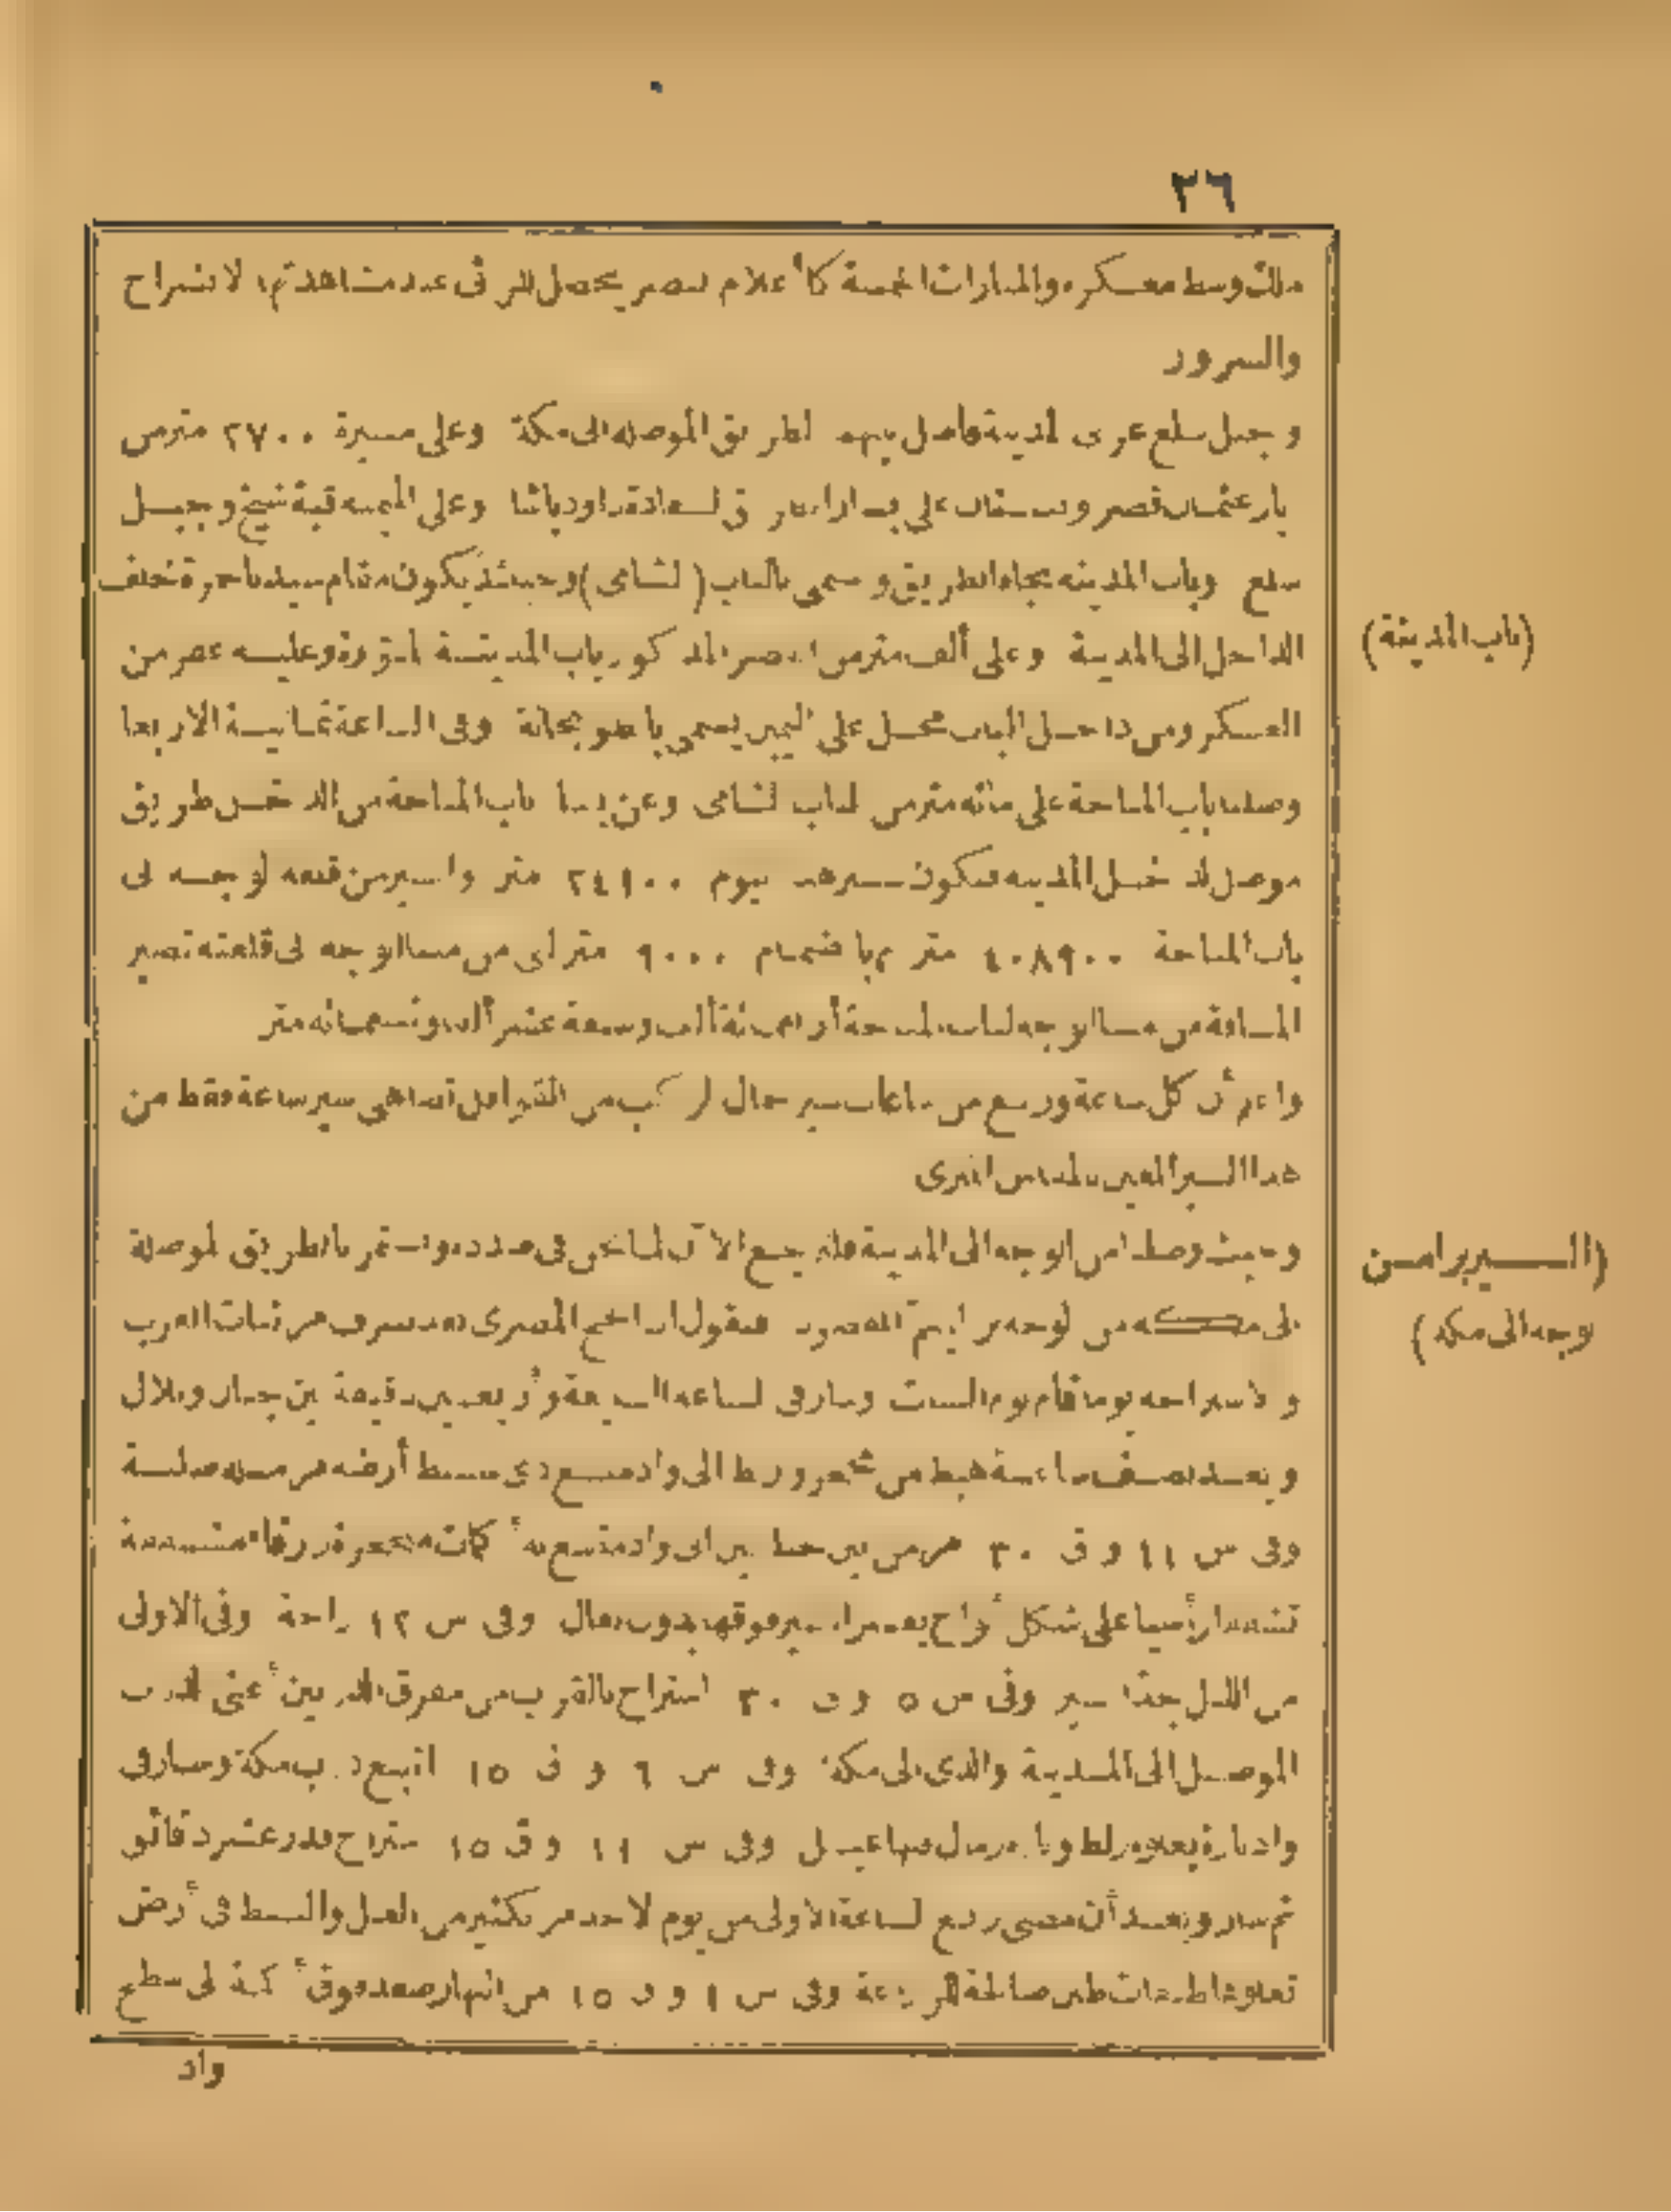 ٣٦
ملك وسط معسكره والمنارات الخمسة كأعلام النصر يحصل للرائى عند مشاهدتها الانشراح
والسرور
وجبل سلع غربى المدينة فاصل بينهما الطريق الموصلة الى مكة وعلى مسيرة ٢٧٠٠ متر من
بئر عثمان قصر وبستان على يسار الطريق لسعادة داود باشا وعلى اليمين قبة شيخ وجبل
سلع وباب المدينة تجاه الطريق ويسمى بالباب (الشامى) وحينئذ يكون مقام سيدنا حمزة خلف
(باب المدينة)
الداخل الى المدينة وعلى ألف متر من القصر المذكور باب المدينة المنورة وعليه خفر من
العسكر ومن داخل الباب محل على اليمين يسمى بالطوبخانة وفى الساعة ثمانية الا ربعا
وصلنا باب المناخة على مائة متر من الباب الشامى وعن يسار باب المناخة من الداخل طريق
موصل لداخل المدينة فيكون سير هذا اليوم ٢٤٩٠٠ متر والسير من قلعة الوجه الى
باب المناخة ٤٠٨٩٠٠ متر وبانضمام ٩٠٠٠ متر التى من مينا الوجه الى قلعته تصير
المسافة من مينا الوجه لباب المناخة أربعمائة ألف وسبعة عشر ألف وتسعمائة متر
واعلم أن كل ساعة وربع من ساعات سير جمال الركب من القوافل تضاهى سير ساعة فقط من
هذا السير المعين بالمقاس المترى
وحيث وصلنا من الوجه الى المدينة فلنرجع الآن لما نحن فى صدده ونستمر بالطريق الموصلة
(السير برا من
الى مكة من الوجه برا ليتم المقصود فنقول ان الحج المصرى بعد صرف مرتبات العرب
الوجه الى مكة)
والاستراحة يوما قام يوم السبت وسار فى الساعة السابعة وأربعين دقيقة بين جبال وتلال
وبعد نصف ساعة هبط من محجر وزلط الى واد متسع ذى سنط أرضه مرملة صلبة
وفى س ١١ و ق ٣٠ مر من بين حطابين الى واد متسع به أكمات محجرة زرقاء متسعة
تمتد رأسيا على شكل ألواح يعسر السير فوقها بدون نعال وفى س ١٢ راحة وفى الاولى
من الليل جدّ السير وفى س ٥ و ق ٣٠ استراح بالقرب من مفرق الدربين أعنى الدرب
الموصل الى المدينة والذى الى مكة وفى س ٦ و ق ١٥ اتبع درب مكة وسار فى
واد تارة يعلوه زلط وتارة رمال فيها عبل وفى س ١١ و ق ١٥ استراح قدر عشر دقائق
ثم سار وبعد أن مضى ربع الساعة الاولى من يوم الاحد مر بكثير من العبل والسنط فى أرض
تعلوها طبقات طين صالحة للزراعة وفى س ١ و ق ١٥ من النهار صعد فوق أكمة الى سطح
واد